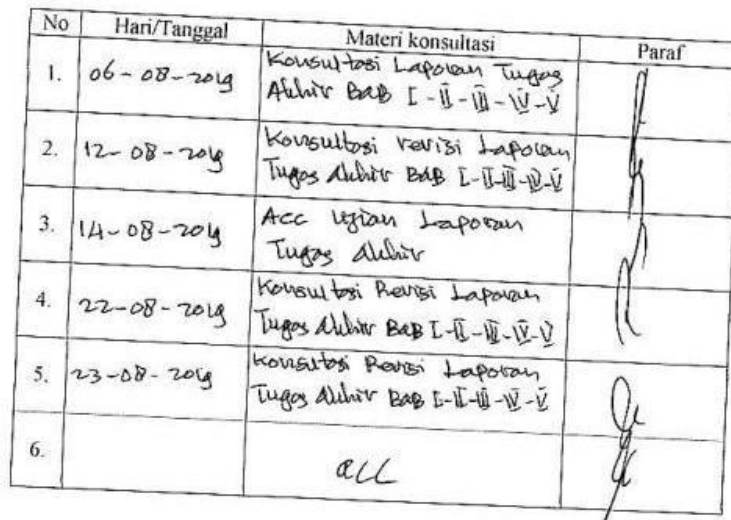 No Hari/Tanggal Materi konsultasi Paraf
1. 06-08-2019 Konsultasi Laporan Tugas
Akhir BAB I-II-III-IV-V
2. 12-08-2019 Konsultasi revisi Laporan
Tugas Akhir BAB I-II-III-IV-V
3. 14-08-2019 Acc Ujian Laporan
Tugas Akhir
4. 22-08-2019 Konsultasi Revisi Laporan
Tugas Akhir BAB I-II-III-IV-V
5. 23-08-2019 Konsultasi Revisi Laporan
Tugas Akhir BAB I-II-III-IV-V
6. acc